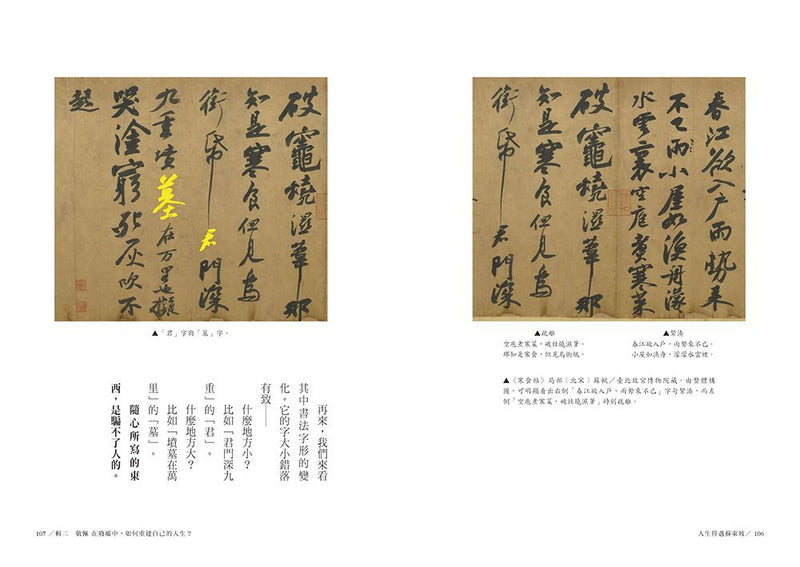 春江欲入戶雨勢來
不已雨小屋如漁舟濛
水雲裏空庖煮寒菜
破竈燒濕葦那
知是寒食但見烏
銜帋君門深
▲緊湊
春江欲入戶,雨勢來不已。
小屋如漁舟,濛濛水雲裡。
▲疏離
空庖煮寒菜,破灶燒濕葦。
那知是寒食,但見烏銜紙。
▲《寒食帖》局部〔北宋〕蘇軾/臺北故宮博物院藏。由整體構
圖,可明顯看出右側「春江欲入戶,雨勢來不已」字句緊湊,而左
側「空庖煮寒菜,破灶燒濕葦」時則疏離。
人生得遇蘇東坡/ 106
破竈燒濕葦那
知是寒食但見烏
銜帋君門深
九重墳墓在万里也擬
哭塗窮死灰吹不
起
▲「君」字與「墓」字。
再來,我們來看
其中書法字形的變
化。它的字大小錯落
有致——
什麼地方小?
比如「君門深九
重」的「君」。
什麼地方大?
比如「墳墓在萬
里」的「墓」。
隨心所寫的東
西,是騙不了人的。
107 /輯二 敬佩 在廢墟中,如何重建自己的人生?